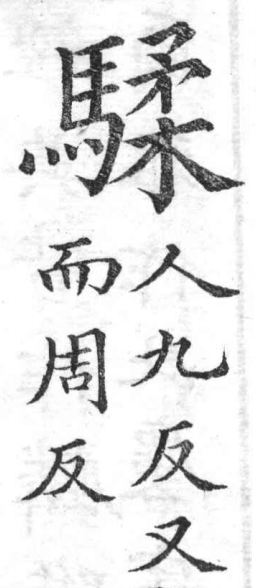 騥
人九反又
而周反